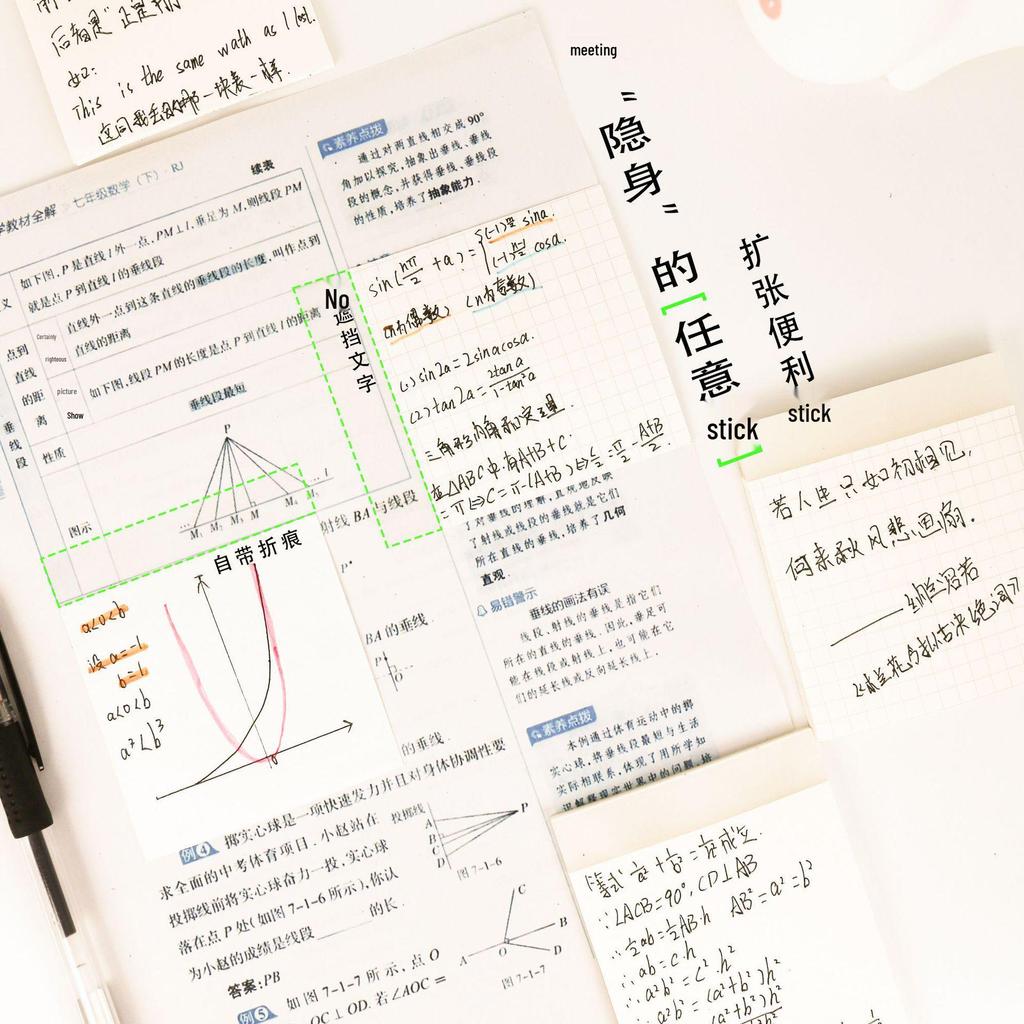 后者是"正是那
如:
This is the same wath as I lost.
这同我丢的那一块表一样.
meeting
"隐身"的
任意
stick
扩张便利
stick
学教材全解 七年级数学(下)·RJ
续表
如下图,P是直线l外一点,PM⊥l,垂足为M,则线段PM
就是点P到直线l的垂线段
直线外一点到这条直线的垂线段的长度,叫作点到
直线的距离
如下图,线段PM的长度是点P到直线l的距离
垂线段最短
点到
直线
的距
离
垂
线
段
Certainly
righteous
picture
Show
性质
图示
P
l
M₁ M₂ M₃ M M₄ M₅
No
遮挡文字
自带折痕
素养点拨
通过对两直线相交成90°
角加以探究,抽象出垂线、垂线
段的概念,并获得垂线、垂线段
的性质,培养了抽象能力.
sin(nπ/2 + a) =
sina.
cosa.
(n为偶数) (n为奇数)
(1) sin2a = 2sinacosa.
(2) tan2a = 2tana/1-tan²a
三角形内角和定理
在△ABC中,有A+B+C
=π⇔C=π-(A+B)⇔C/2=π/2-A+B/2
了射线或线段的垂线就是它们
所在直线的垂线,培养了几何
直观.
易错警示
垂线的画法有误
线段、射线的垂线是指它们
所在的直线的垂线.因此,垂足可
能在线段或射线上,也可能在它
们的延长线或反向延长线上.
素养点拨
本例通过体育运动中的掷
实心球,将垂线段最短与生活
实际相联系,体现了用所学知
识解释现实世界中的问题,培
射线BA与线段
P
BA的垂线.
P
的垂线.
a<0<b
设a=-1
b=1
a<0<b
a³<b³
例4 掷实心球是一项快速发力并且对身体协调性要
求全面的中考体育项目.小赵站在
投掷线前将实心球奋力一投,实心球
落在点P处(如图7-1-6所示),你认
为小赵的成绩是线段 的长.
答案:PB
投掷线
A
B
C
D
P
图7-1-6
例5 如图7-1-7所示,点O
OC⊥OD.若∠AOC=
C
B
A
O
D
图7-1-7
若人生只如初相见,
何来秋风悲画扇.
∵∠ACB=90°,CD⊥AB
∴½ab=½AB·h AB²=a²=b²
∴ab=c·h
∴a²b²=c²·h²
∴a²b²=(a²+b²)h²